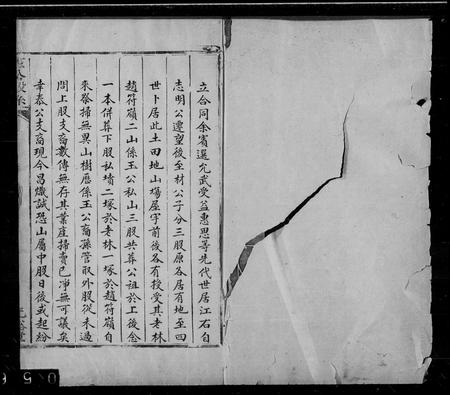 立合同余賓選允武受益惠思等先代世居江右自
志明公遷望後至材公子分三股原各居有地至四
世卜居此土田地山塲屋宇前後各有授受其老林
趙符嶺二山係玉公私山三股共葬公祖於上後念
一本併葬下股私墳二塚於老林一塚於趙符嶺自
來祭掃無異山樹歷係玉公裔孫管取外股從未過
問上股支裔數傳無存其業產掃賣已凈無可議矣
幸泰公支裔現今昌熾誠恐山屬中股日後或起紛
0 5 6